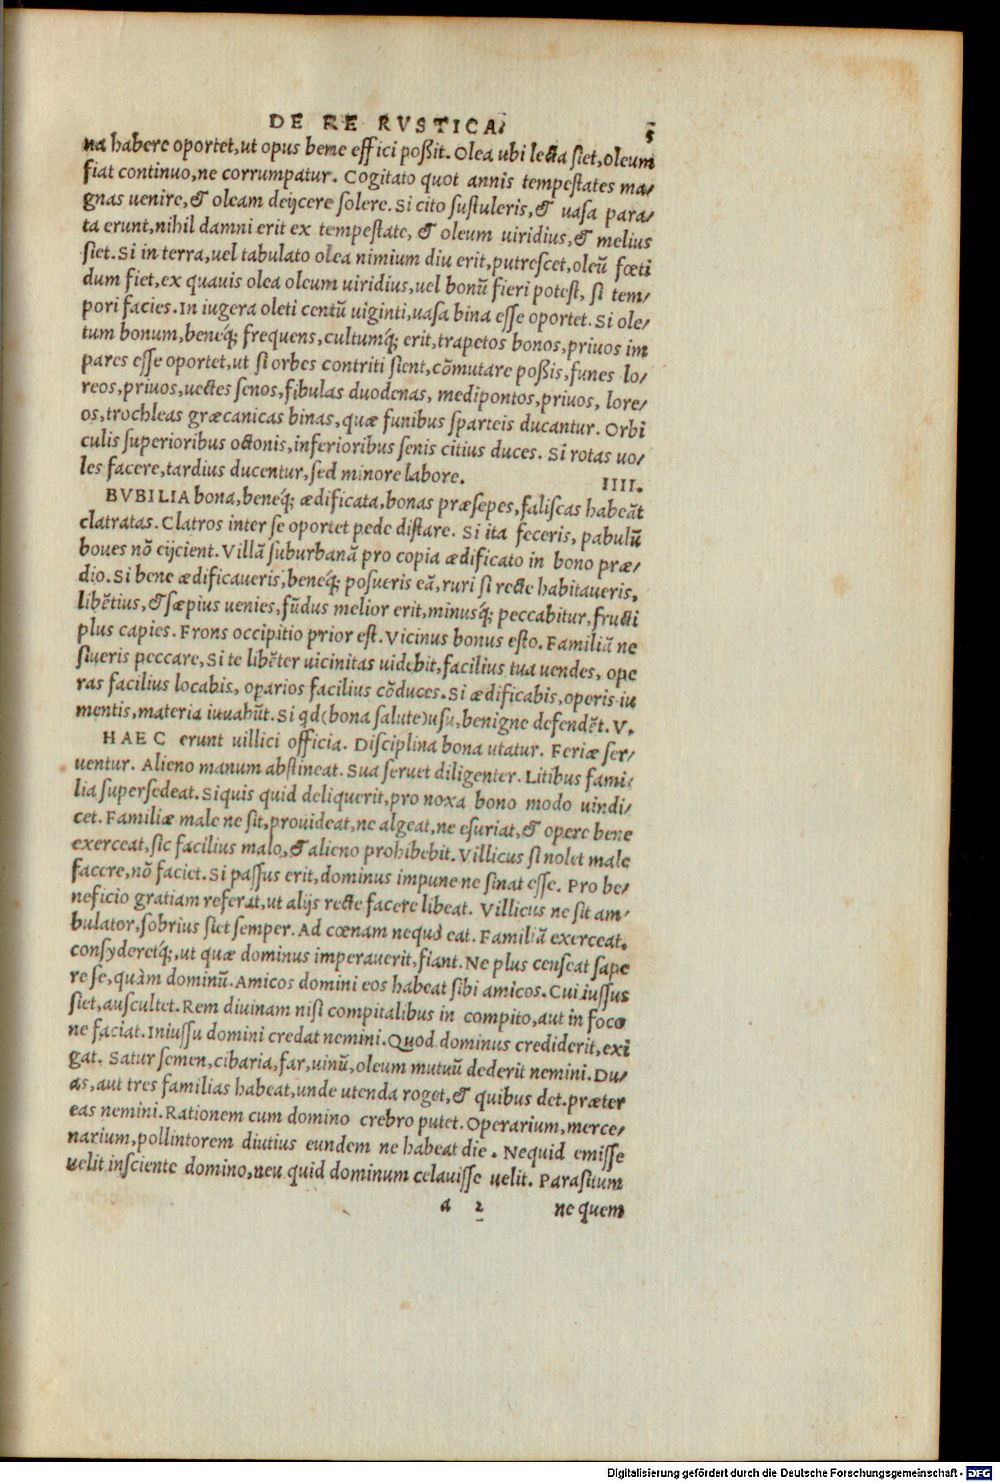 DE RE RVSTICA. 5
na habere oportet,ut opus bene effici poßit. Olea ubi lecta siet,oleum
fiat continuo,ne corrumpatur. Cogitato quot annis tempestates ma/
gnas uenire,& oleam deijcere solere. Si cito sustuleris,& uasa para/
ta erunt,nihil damni erit ex tempestate, & oleum uiridius,& melius
siet. Si in terra,uel tabulato olea nimium diu erit,putrescet,oleũ fœti
dum fiet,ex quauis olea oleum uiridius,uel bonũ fieri potest, si tem/
pori facies. In iugera oleti centũ uiginti,uasa bina esse oportet. Si ole/
tum bonum,beneq́; frequens,cultumq́; erit,trapetos bonos,priuos im
pares esse oportet,ut si orbes contriti sient,cõmutare poßis,funes lo/
reos,priuos,uectes senos,fibulas duodenas, medipontos,priuos, lore/
os,trochleas græcanicas binas,quæ funibus sparteis ducantur. Orbi
culis superioribus octonis,inferioribus senis citius duces. Si rotas uo/
les facere,tardius ducentur,sed minore labore. IIII.
BVBILIA bona,beneq́; ædificata,bonas præsepes,faliscas habeãt
clatratas. Clatros inter se oportet pede distare. Si ita feceris, pabulũ
boues nõ eijcient. Villã suburbanã pro copia ædificato in bono præ/
dio. Si bene ædificaueris,beneq́; posueris eã,ruri si recte habitaueris,
libẽtius,& sæpius uenies,fũdus melior erit,minusq́; peccabitur,fructi
plus capies. Frons occipitio prior est. Vicinus bonus esto. Familiã ne
siueris peccare,Si te libẽter uicinitas uidebit,facilius tua uendes, ope
ras facilius locabis, oparios facilius cõduces. Si ædificabis,operis iu
mentis,materia iuuabũt. Si qd(bona salute)usu,benigne defendẽt. V.
HAEC erunt uillici officia. Disciplina bona utatur. Feriæ ser/
uentur. Alieno manum abstineat. Sua seruet diligenter. Litibus fami/
lia supersedeat. Siquis quid deliquerit,pro noxa bono modo uindi/
cet. Familiæ male ne sit,prouideat,ne algeat,ne esuriat,& opere bene
exerceat,sic facilius malo,& alieno prohibebit. Villicus si nolet male
facere,nõ faciet. Si passus erit,dominus impune ne sinat esse. Pro be/
neficio gratiam referat,ut alijs recte facere libeat. Villicus ne sit am/
bulator,sobrius siet semper. Ad cœnam nequò eat. Familiã exerceat,
consyderetq́;,ut quæ dominus imperauerit,fiant. Ne plus censeat sape
re se,quàm dominũ. Amicos domini eos habeat sibi amicos. Cui iussus
siet,auscultet. Rem diuinam nisi compitalibus in compito,aut in foco
ne faciat. Iniussu domini credat nemini. Quod dominus crediderit,exi
gat. Satur semen,cibaria,far,uinũ,oleum mutuũ dederit nemini. Du/
as,aut tres familias habeat,unde utenda roget,& quibus det.præter
eas nemini. Rationem cum domino crebro putet. Operarium,merce/
narium,pollintorem diutius eundem ne habeat die. Nequid emisse
uelit insciente domino,neu quid dominum celauisse uelit. Parasitum
a 2 ne quem
Digitalisierung gefördert durch die Deutsche Forschungsgemeinschaft - DFG